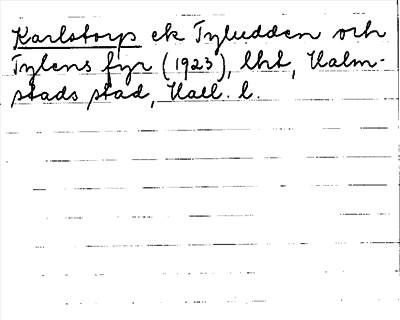 Karlstorp ek Tyludden och
Tylens fyr (1923), lht, Halm-
stads stad, Hall. l.